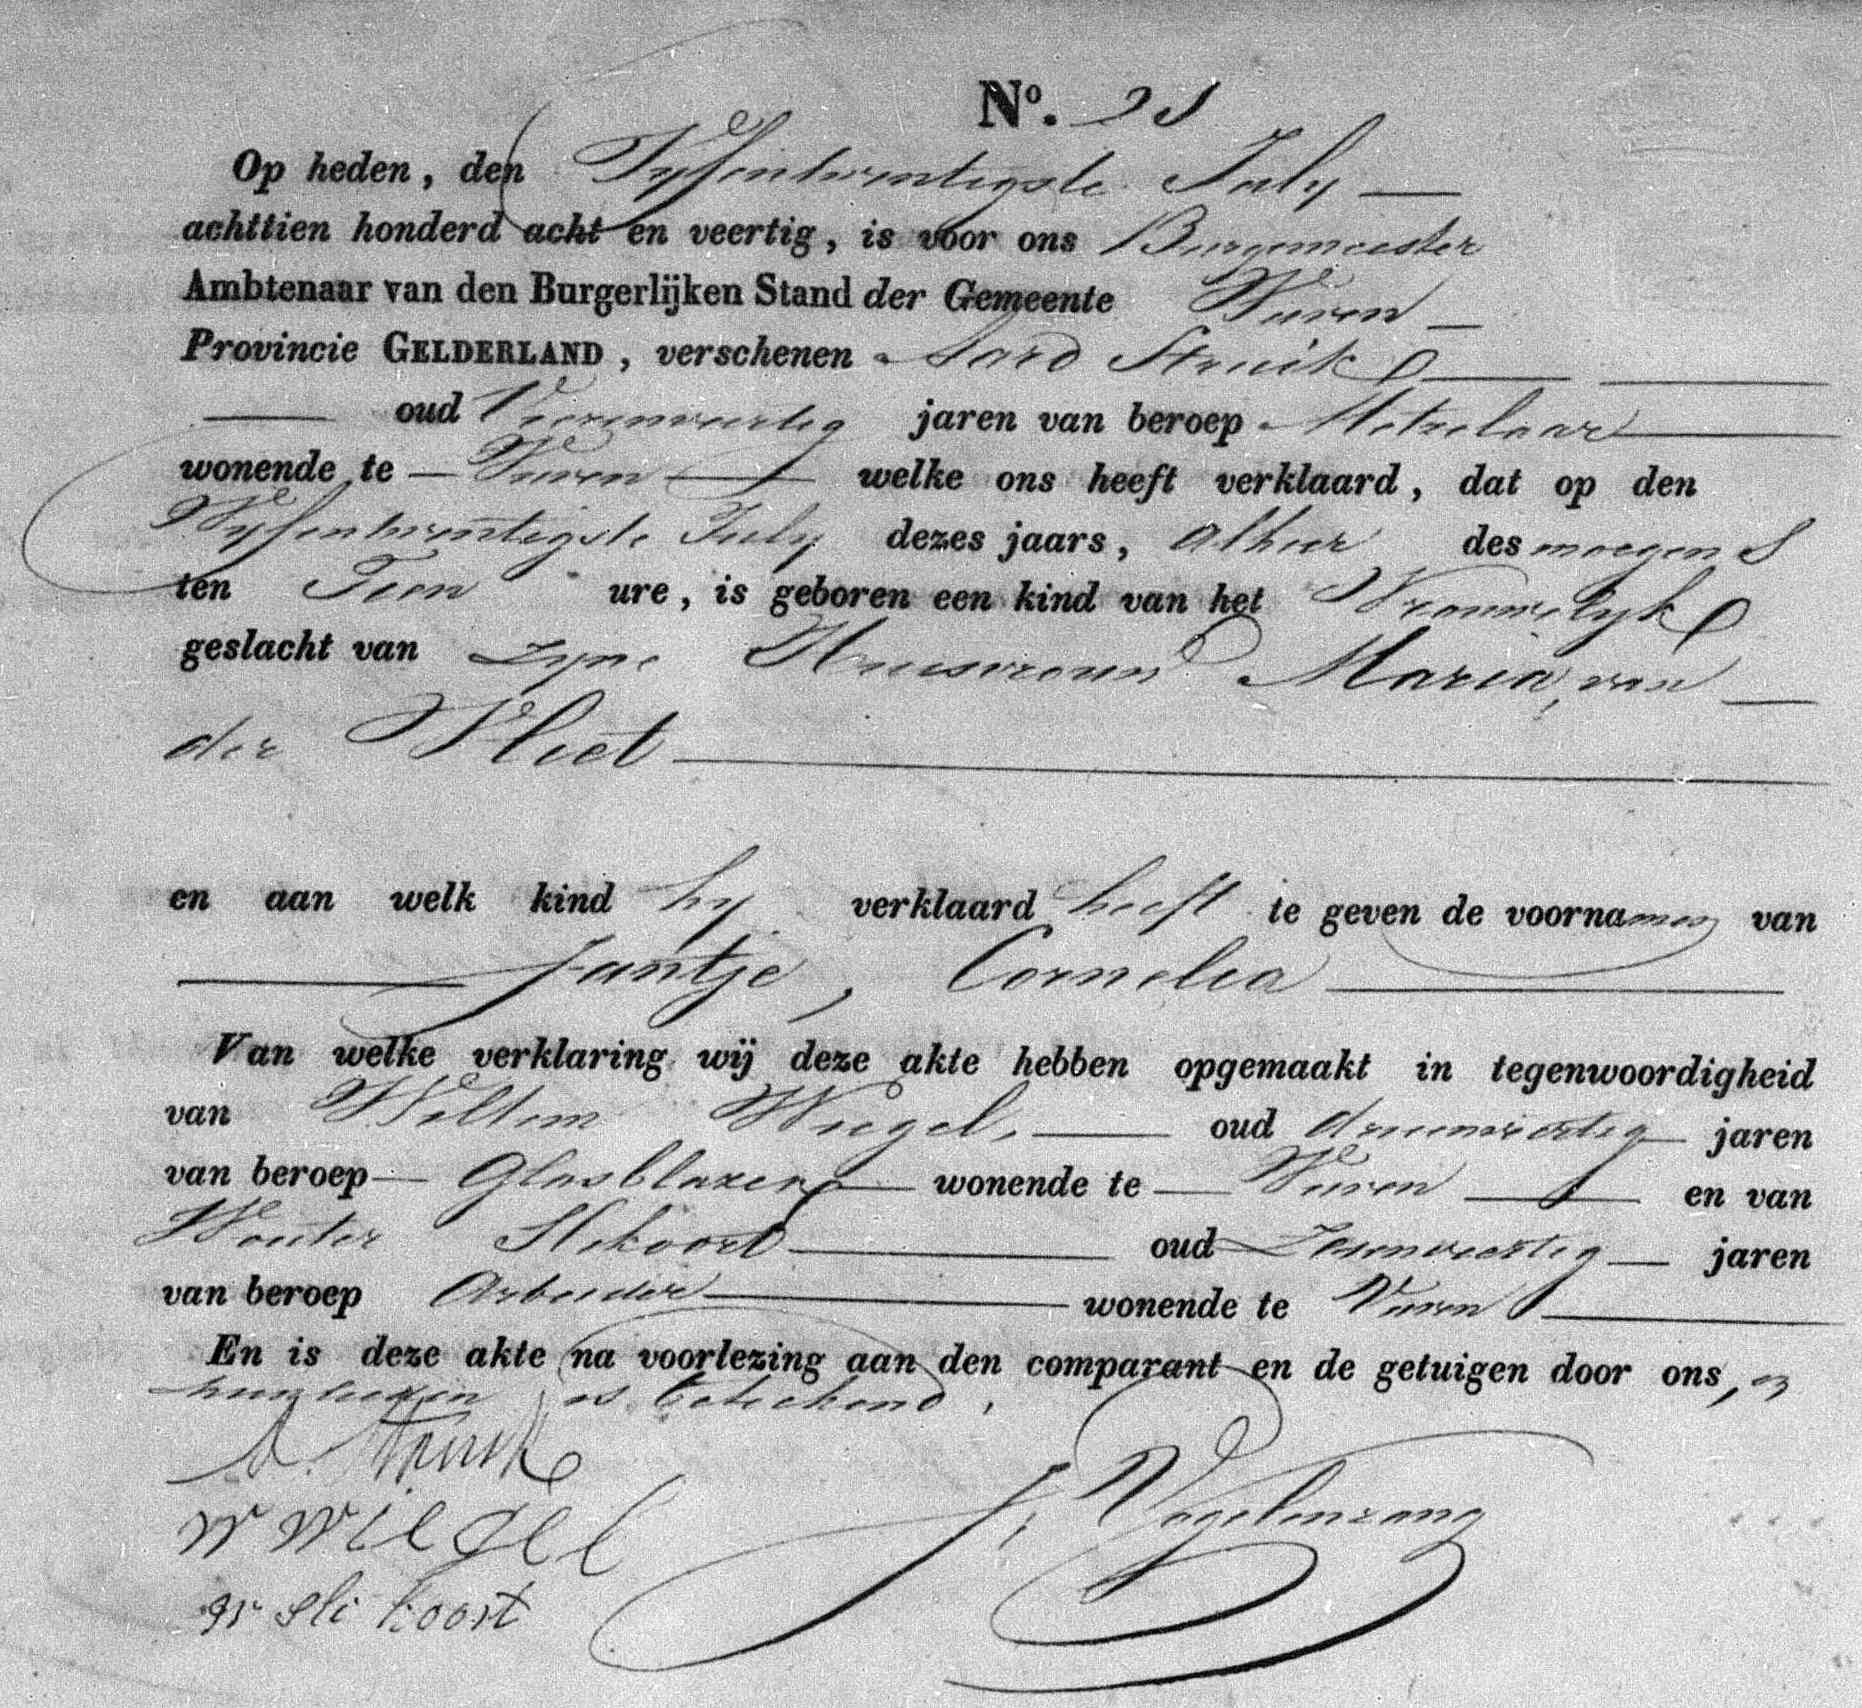 Nº. 21
Op heden, den Vyfentwintigste July
achttien honderd acht en veertig, is voor ons Burgemeester
Ambtenaar van den Burgerlijken Stand der Gemeente Vuren
Provincie GELDERLAND, verschenen Aard Struik
oud Vierenveertig jaren van beroep Metzelaar
wonende te Vuren welke ons heeft verklaard, dat op den
Vyfentwintigste July dezes jaars, alhier des morgens
ten Tien ure, is geboren een kind van het Vrouwelyk
geslacht van Zyne Huisvrouw Maria, van
der Vliet
en aan welk kind hy verklaard heeft te geven de voornamen van
Jantje, Cornelia
Van welke verklaring wij deze akte hebben opgemaakt in tegenwoordigheid
van Willem Wiegel, oud drieenveertig jaren
van beroep Glasblazer wonende te Vuren en van
Wouter Slekoort oud Zesenveertig jaren
van beroep Arbeider wonende te Vuren
En is deze akte na voorlezing aan den comparant en de getuigen door ons, en
hunlieden is geteekend.
A. Struik
W Wiegel
W Sle koort
J. Vogelenzang